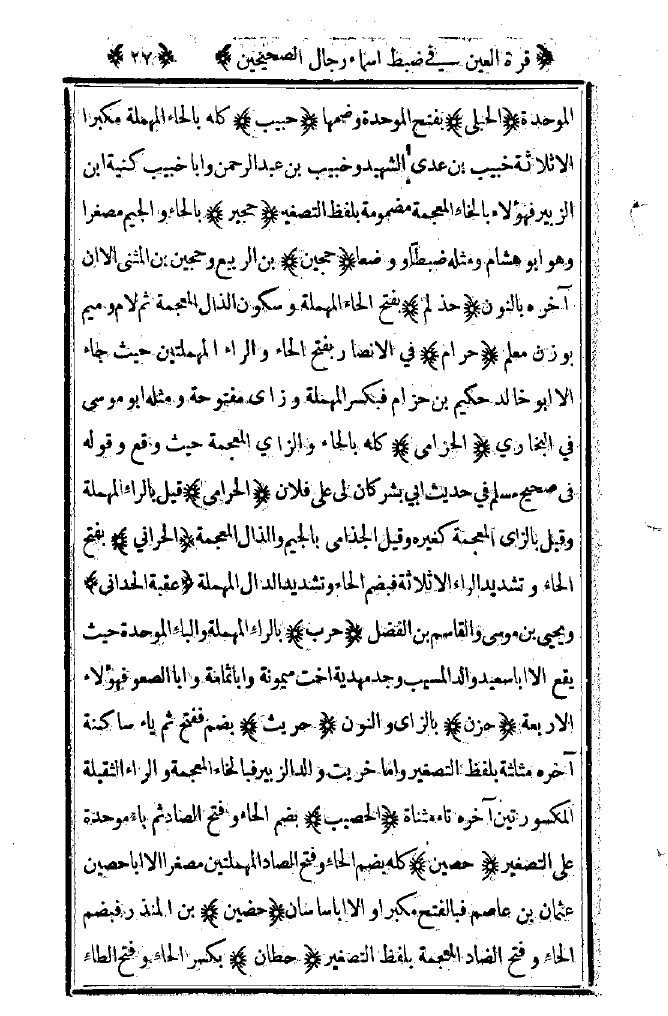 ﴿ قرة العين في ضبط اسماء رجال الصحيحين ﴾ ﴿ ٢٧ ﴾
الموحدة ﴿ الحبلى ﴾ بفتح الموحدة وضمها ﴿ حبيب ﴾ كله بالحاء المهملة مكبرا
الاثلاثة خبيب بن عدى الشهيد وخبيب بن عبدالرحمن وابا خبيب كنية ابن
الزبير فهؤلاء بالخاء المعجمة مضمومة بلفظ التصغير ﴿ حجير ﴾ بالحاء والجيم مصغرا
وهو ابو هشام ومثله ضبطا ووضعا ﴿ حجين ﴾ بن الربيع وحجين بن المثنى الا ان
آخره بالنون ﴿ حذلم ﴾ بفتح الحاء المهملة وسكون الذال المعجمة ثم لام وميم
بوزن معلم ﴿ حرام ﴾ في الانصار بفتح الحاء والراء المهملتين حيث جاء
الا ابو خالد حكيم بن حزام فبكسر المهملة وزاى مفتوحة ومثله ابو موسى
في البخاري ﴿ الحزامى ﴾ كله بالحاء والزاي المعجمة حيث وقع وقوله
فى صحيح مسلم في حديث ابي بشر كان لى على فلان ﴿ الحرامى ﴾ قيل بالراء المهملة
وقيل بالزاى المعجمة كغيره وقيل الجذامى بالجيم والذال المعجمة ﴿ الحراني ﴾ بفتح
الحاء وتشديد الراء الاثلاثة فبضم الحاء وتشديد الدال المهملة ﴿ عقبة الحدانى ﴾
ويحيى بن موسى والقاسم بن الفضل ﴿ حرب ﴾ بالراء المهملة والباء الموحدة حيث
يقع الا ابا سعيد والد المسيب وجد مهدية اخت ميمونة وابا ثمامة وابا الصعو فهؤلاء
الاربعة ﴿ حزن ﴾ بالزاى والنون ﴿ حريث ﴾ بضم ففتح ثم ياء ساكنة
آخره مثلثة بلفظ التصغير واما خريت والد الزبير فبالخاء المعجمة والراء الثقيلة
المكسورتين آخره تاء مثناة ﴿ الحصيب ﴾ بضم الحاء وفتح الصاد ثم باء موحدة
على التصغير ﴿ حصين ﴾ كله بضم الحاء وفتح الصاد المهملتين مصغرا الا ابا حصين
عثمان بن عاصم فبالفتح مكبرا والا ابا ساسان ﴿ حضين ﴾ بن المنذر فبضم
الحاء وفتح الضاد المعجمة بلفظ التصغير ﴿ حطان ﴾ بكسر الحاء وفتح الطاء